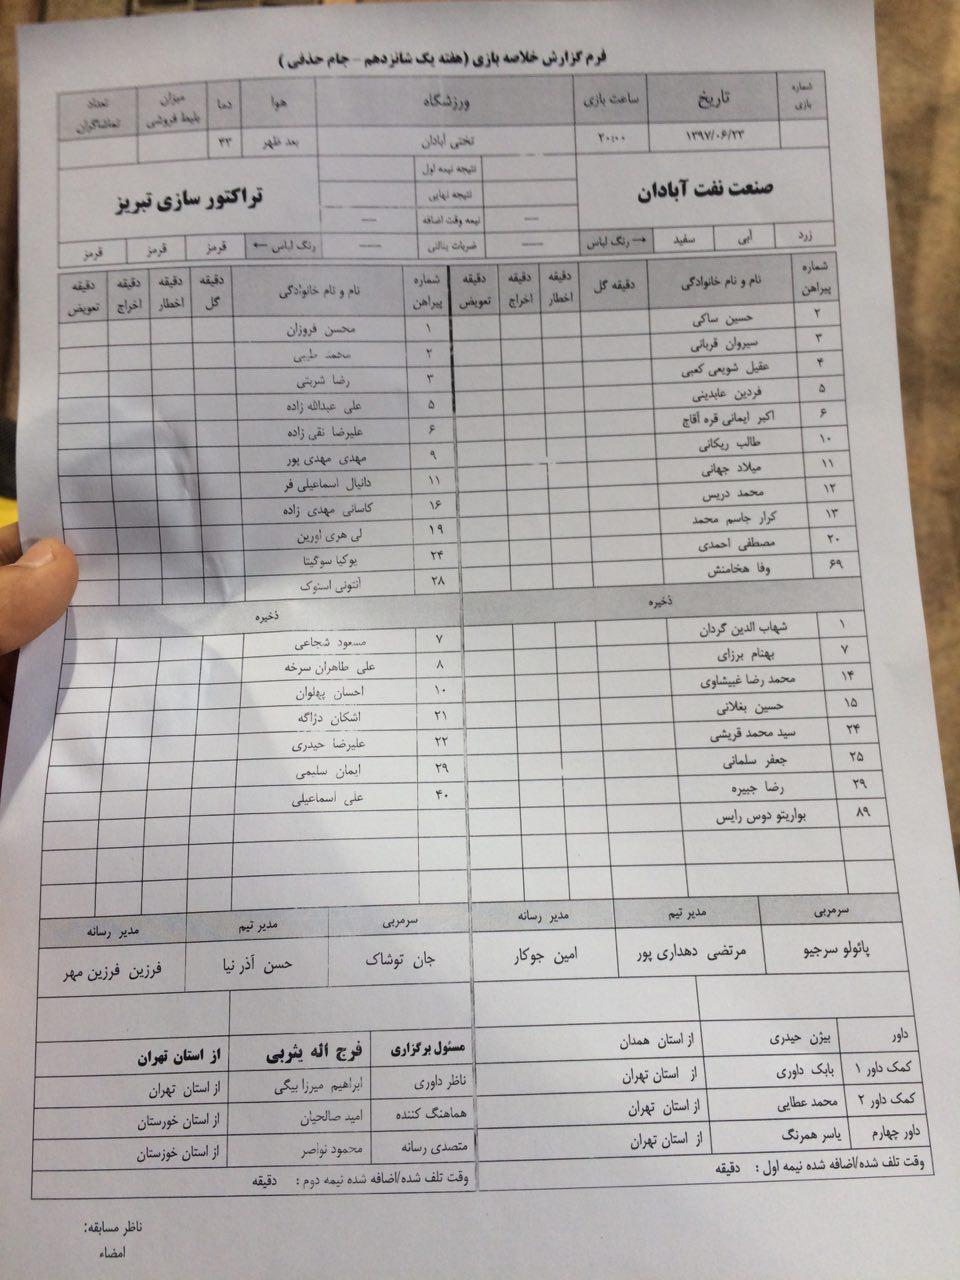 فرم گزارش خلاصه بازی (هفته یک شانزدهم - جام حذفی )
شماره بازی | تاریخ | ساعت بازی | ورزشگاه | هوا | دما | میزان بلیط فروشی | تعداد تماشاگران
۱۳۹۷/۰۶/۲۳ | ۲۰:۰۰ | تختی آبادان | بعد ظهر | ۳۳
صنعت نفت آبادان | نتیجه نیمه اول | تراکتور سازی تبریز
نتیجه نهایی
— | نیمه وقت اضافه | —
زرد | آبی | سفید | رنگ لباس → | — | ضربات پنالتی | — | رنگ لباس ← | قرمز | قرمز | قرمز
شماره پیراهن | نام و نام خانوادگی | دقیقه گل | دقیقه اخطار | دقیقه اخراج | دقیقه تعویض | شماره پیراهن | نام و نام خانوادگی | دقیقه گل | دقیقه اخطار | دقیقه اخراج | دقیقه تعویض
۲ | حسین ساکی | ۱ | محسن فروزان
۳ | سیروان قربانی | ۲ | محمد طیبی
۴ | عقیل شویعی کعبی | ۳ | رضا شربتی
۵ | فردین عابدینی | ۵ | علی عبدالله زاده
۶ | اکبر ایمانی قره آقاج | ۶ | علیرضا نقی زاده
۱۰ | طالب ریکانی | ۹ | مهدی مهدی پور
۱۱ | میلاد جهانی | ۱۱ | دانیال اسماعیلی فر
۱۲ | محمد دریس | ۱۶ | کاسانی مهدی زاده
۱۳ | کرار جاسم محمد | ۱۹ | لی هری اورین
۲۰ | مصطفی احمدی | ۲۴ | یوکیا سوگیتا
۶۹ | وفا هخامنش | ۲۸ | آنتونی استوک
ذخیره | ذخیره
۱ | شهاب الدین گردان | ۷ | مسعود شجاعی
۷ | بهنام برزای | ۸ | علی طاهران سرخه
۱۴ | محمد رضا غبیشاوی | ۱۰ | احسان پهلوان
۱۵ | حسین بغلانی | ۲۱ | اشکان دژاگه
۲۴ | سید محمد قریشی | ۲۲ | علیرضا حیدری
۲۵ | جعفر سلمانی | ۲۹ | ایمان سلیمی
۲۹ | رضا جبیره | ۴۰ | علی اسماعیلی
۸۹ | بواریتو دوس رایس
سرمربی | مدیر تیم | مدیر رسانه | سرمربی | مدیر تیم | مدیر رسانه
پائولو سرجیو | مرتضی دهداری پور | امین جوکار | جان توشاک | حسن آذر نیا | فرزین فرزین مهر
داور | بیژن حیدری | از استان همدان | مسئول برگزاری | فرج اله یثربی | از استان تهران
کمک داور ۱ | بابک داوری | از استان تهران | ناظر داوری | ابراهیم میرزا بیگی | از استان تهران
کمک داور ۲ | محمد عطایی | از استان تهران | هماهنگ کننده | امید صالحیان | از استان خورستان
داور چهارم | یاسر همرنگ | از استان تهران | متصدی رسانه | محمود نواصر | از استان خوزستان
وقت تلف شده/اضافه شده نیمه اول : دقیقه | وقت تلف شده/اضافه شده نیمه دوم : دقیقه
ناظر مسابقه:
امضاء